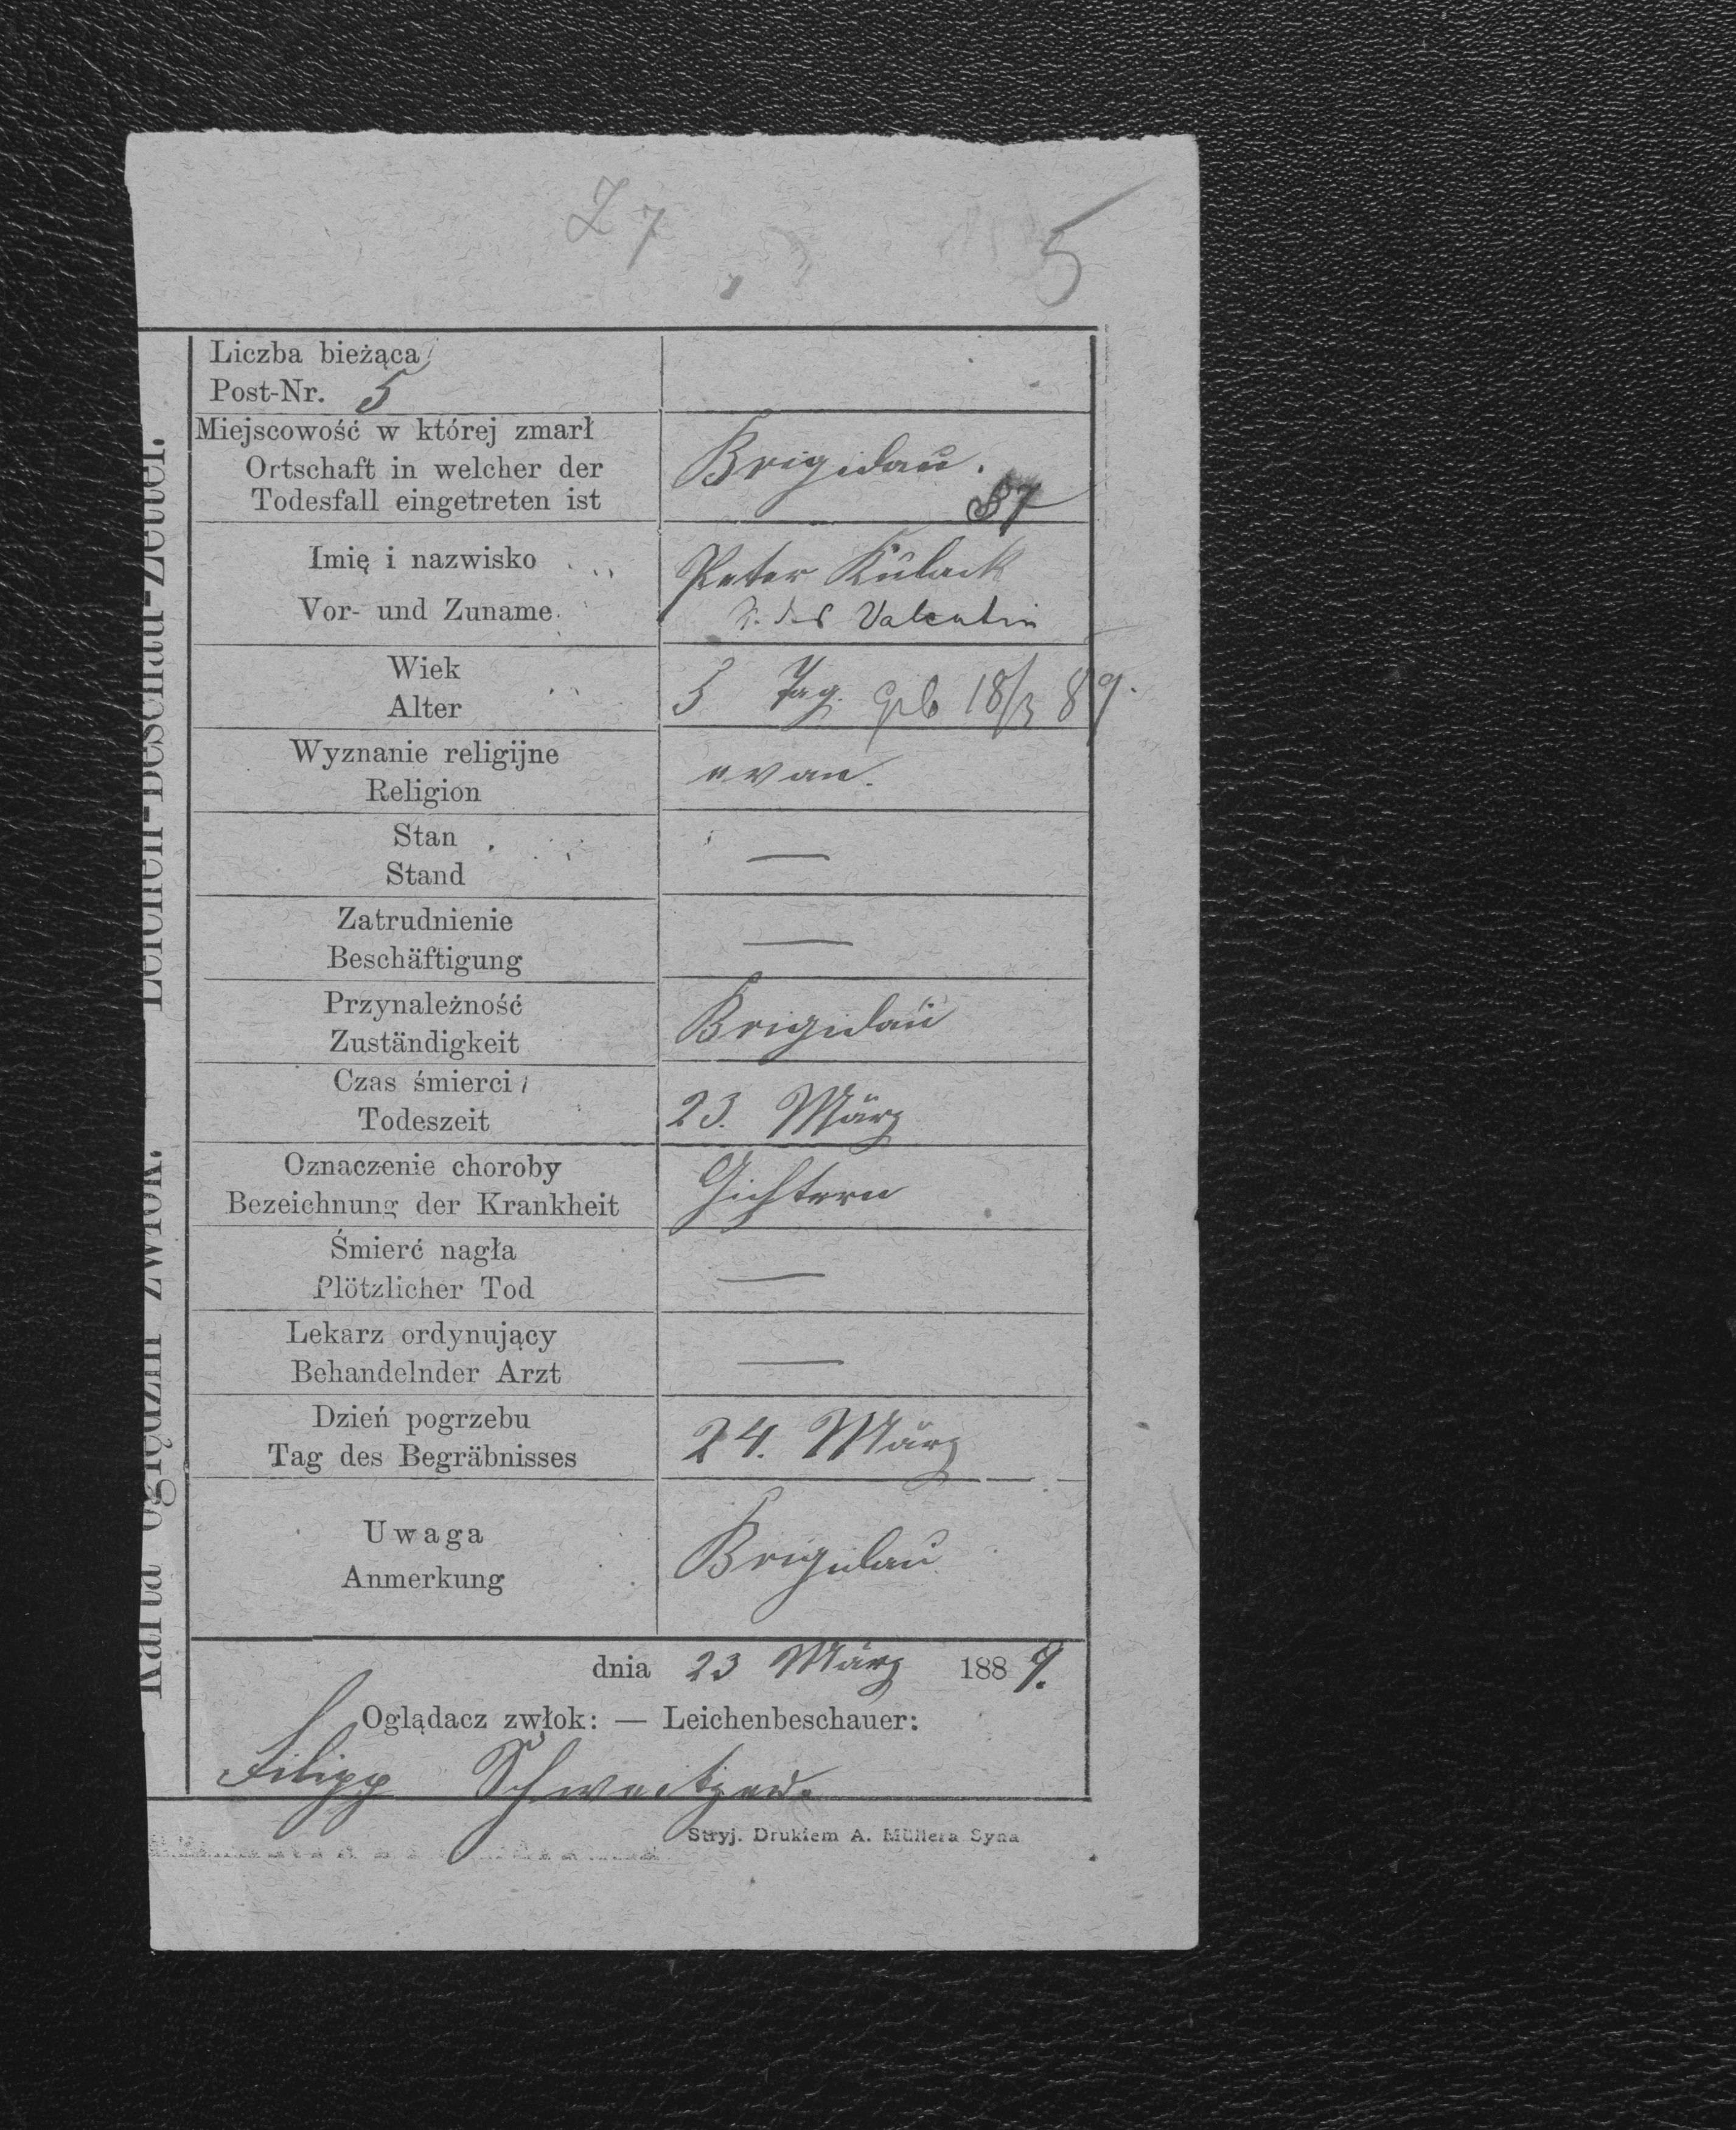 Z 7
5
Karta oględzin zwłok. Leichen-Beschau-Zettel.
Liczba bieżąca
Post-Nr. 5
Miejscowość w której zmarł
Ortschaft in welcher der
Todesfall eingetreten ist
Brigidau.
87
Imię i nazwisko
Vor- und Zuname
Peter Kulack
S. des Valentin
Wiek
Alter
5 Tag. geb 18/3 89.
Wyznanie religijne
Religion
evan.
Stan
Stand
—
Zatrudnienie
Beschäftigung
—
Przynależność
Zuständigkeit
Brigidau
Czas śmierci
Todeszeit
23. März
Oznaczenie choroby
Bezeichnung der Krankheit
Gichtern
Śmierć nagła
Plötzlicher Tod
—
Lekarz ordynujący
Behandelnder Arzt
—
Dzień pogrzebu
Tag des Begräbnisses
24. März
Uwaga
Anmerkung
Brigidau
dnia 23 März 1889.
Oglądacz zwłok: — Leichenbeschauer:
Filipp Schweitzer.
Stryj. Drukiem A. Müllera Syna